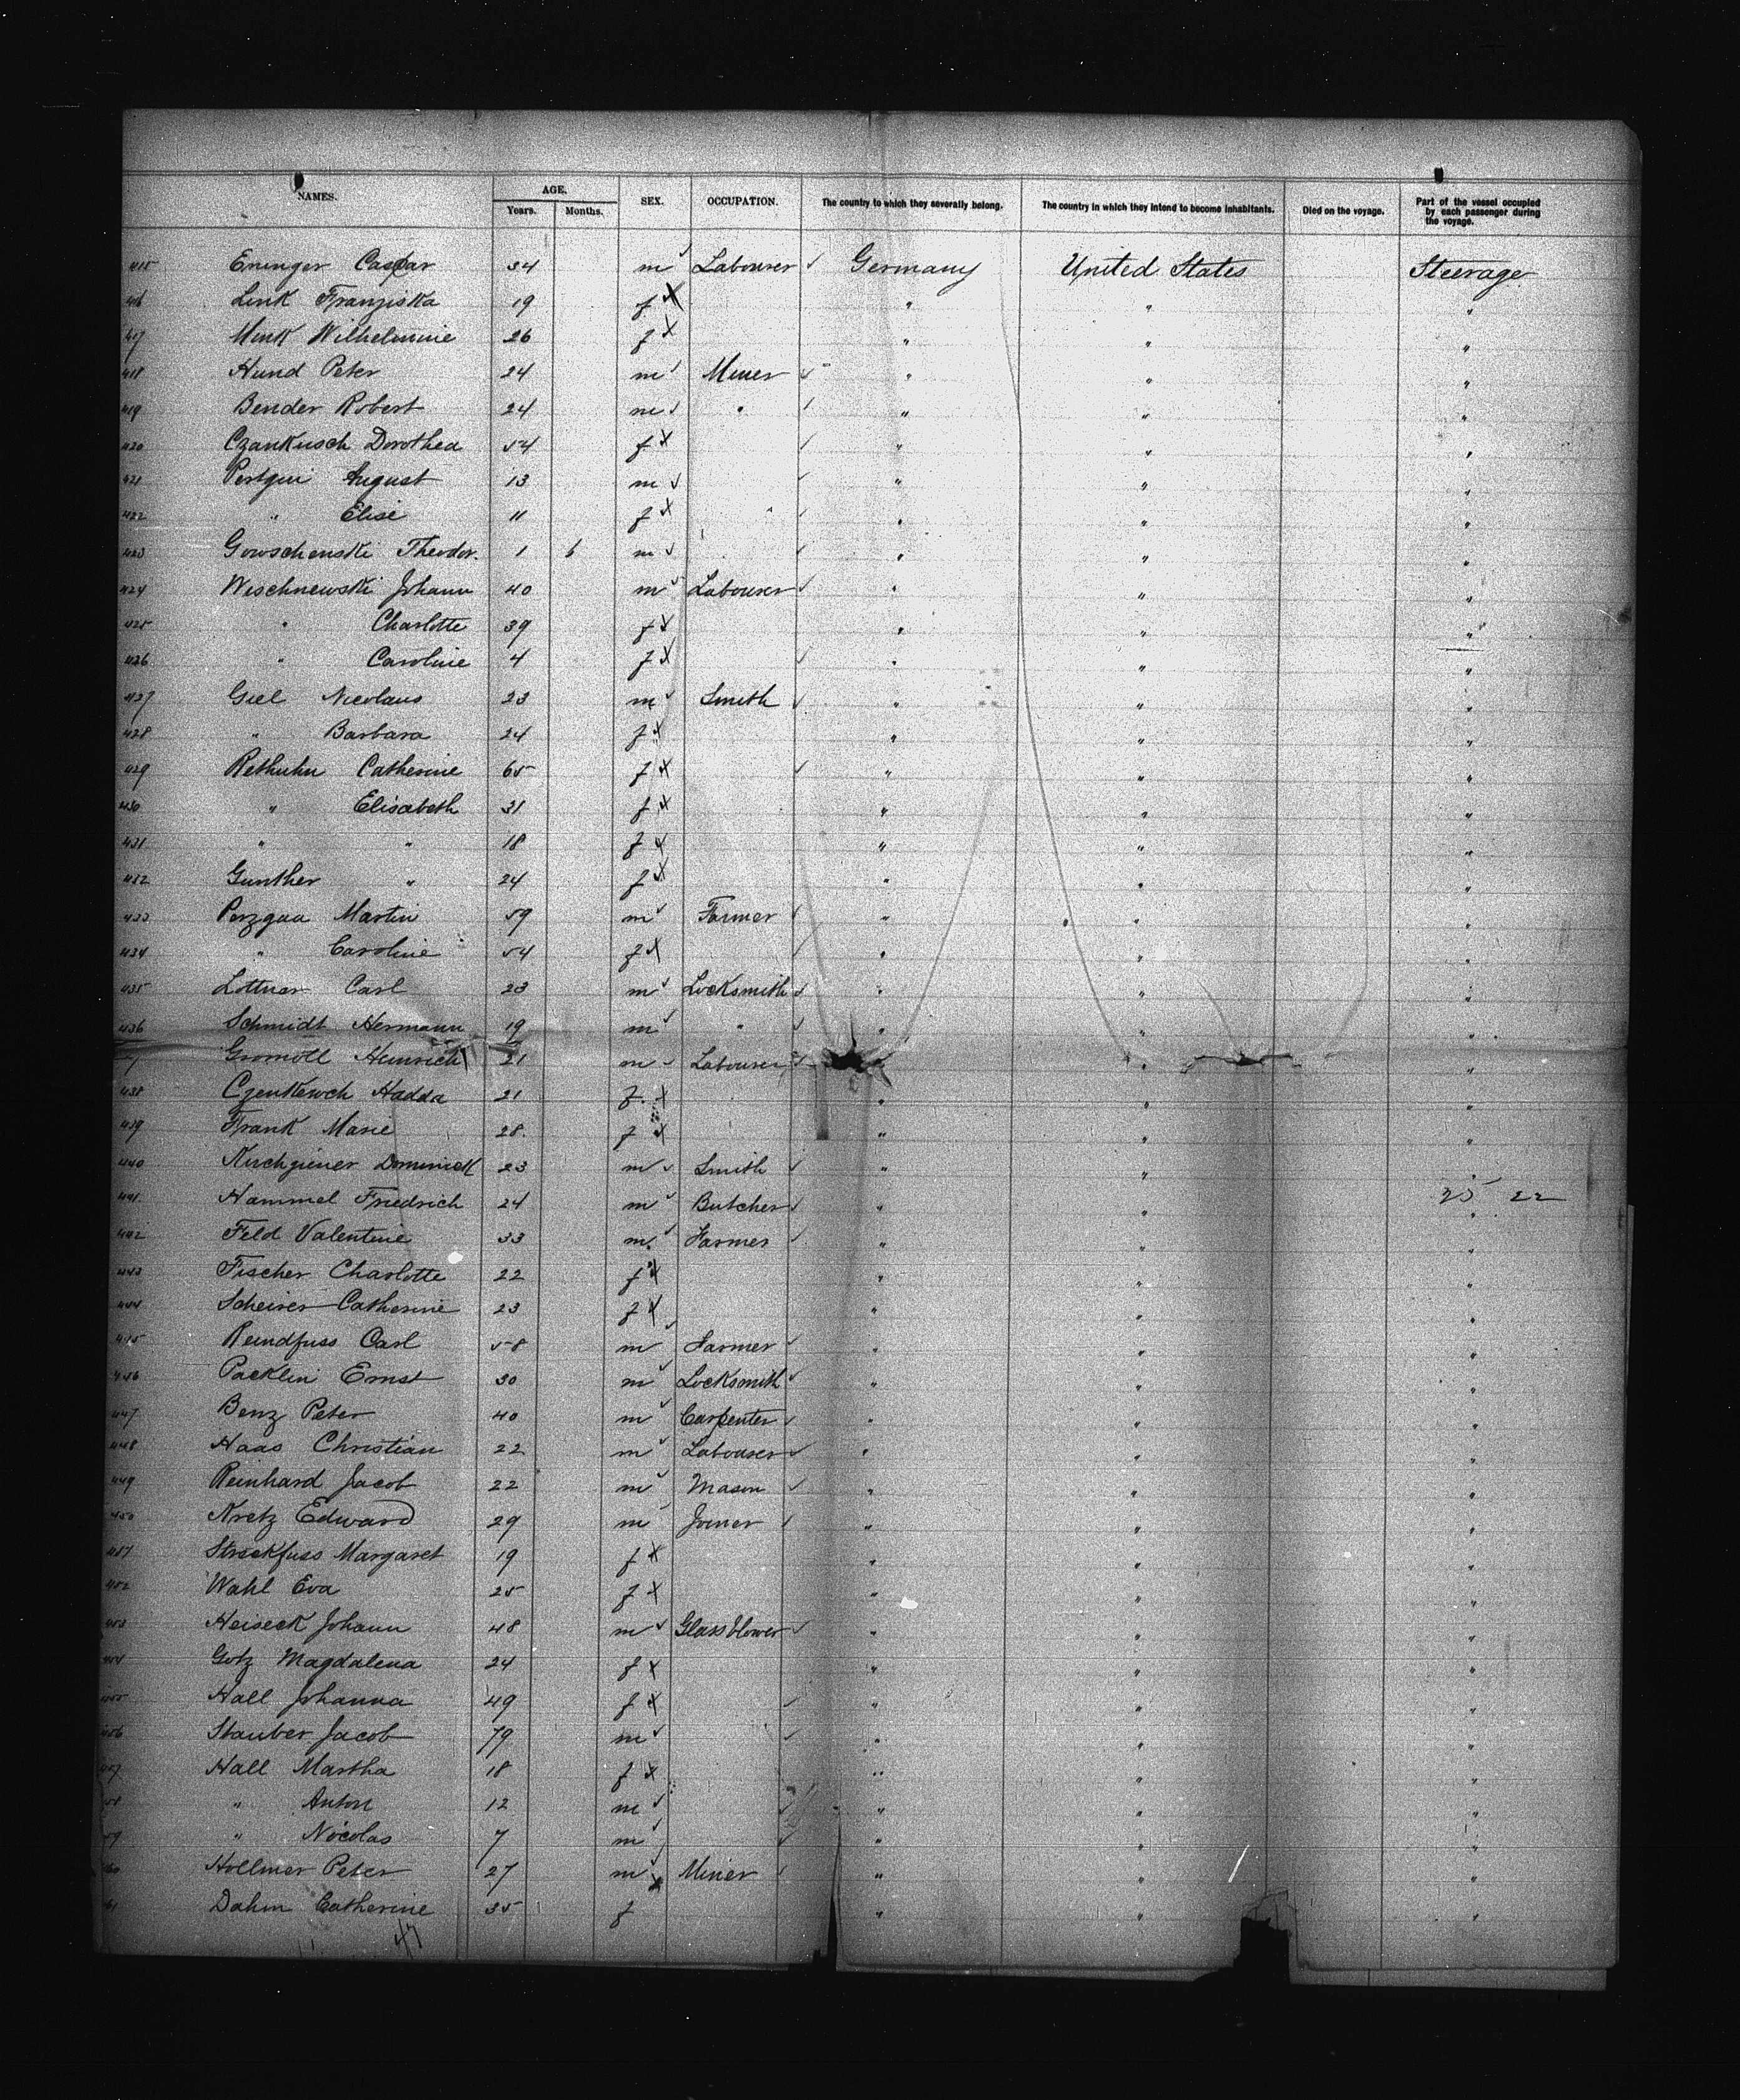 NAMES. AGE. Years. Months. SEX. OCCUPATION. The country to which they severally belong. The country in which they intend to become inhabitants. Died on the voyage. Part of the vessel occupied by each passenger during the voyage.
415 Eninger Caspar 34 m Labourer Germany United States Steerage
416 Link Franziska 19 f " " "
417 Munk Wilhelmine 26 f " " "
418 Hund Peter 24 m Miner " " "
419 Bender Robert 24 m " " " "
420 Czankusch Dorothea 54 f " " "
421 August 13 m " " "
422 " Elise 11 f " " "
423 Gowschenski Theodor. 1 6 m " " "
424 Wischnewski Johann 40 m Labourer " " "
425 " Charlotte 39 f " " "
426 " Caroline 4 f " " "
427 Giel Nicolaus 23 m Smith " " "
428 " Barbara 24 f " " "
429 Rethuhn Catherine 65 f " " "
430 " Elisabeth 31 f " " "
431 " " 18 f " " "
432 Gunther " 24 f " " "
433 Perzgaa Martin 59 m Farmer " " "
434 " Caroline 54 f " " "
435 Lottner Carl 23 m Locksmith " " "
436 Schmidt Hermann 19 m " " " "
Gromoll Heinrich 21 m Labourer " "
438 Hadda 21 f " " "
439 Frank Marie 28. f " " "
440 Dominick 23 m Smith " " "
441 Hammel Friedrich 24 m Butcher " " " 25 22
442 Feld Valentine 33 m. Farmer " " "
443 Fischer Charlotte 22 f " " "
444 Scheirer Catherine 23 f " " "
445 Reindfuss Carl 58 m Farmer " " "
446 Packlin Ernst 30 m Locksmith " " "
447 Benz Peter 40 m Carpenter " " "
448 Haas Christian 22 m Labourer " " "
449 Reinhard Jacob 22 m Mason " " "
450 Kretz Edward 29 m Joiner " " "
451 Streckfuss Margaret 19 f " " "
452 Wahl Eva 25 f " " "
453 Heiseck Johann 48 m Glassblower " " "
454 Gotz Magdalena 24 f " " "
455 Hall Johanna 49 f " " "
456 Stauber Jacob 79 m " " "
457 Hall Martha 18 f " " "
58 " Anton 12 m " " "
59 " Nicolas 7 m " " "
60 Hollmer Peter 27 m Miner " " "
61 Dahm Catherine 35 f " " "
47